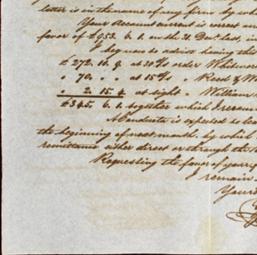 letter is in the name of my firm by which
Your Account current is correct an
favor of £953. 6. 1. on the 31 Decr. last, in
I beg now to advise having
£272. 16. 9. at 30/s order
" 70. " " at 15/s " Reed &
" 2. 15. 4 at sight " William
£345. 6. 1. together which I
A Mandate is expected to leave
the beginning of next month, by which
remittance either direct or through the
Requesting the favor of your
I remain
Yours